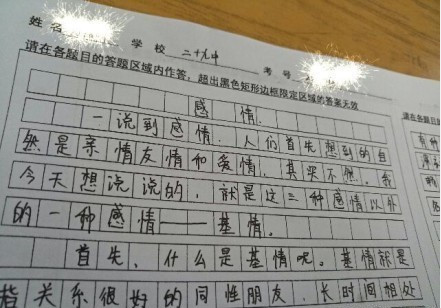 姓名 学校 二十九中 考号
请在各题目的答题区域内作答，超出黑色矩形边框限定区域的答案无效
感情
一说到感情，人们首先想到的自
然是亲情友情和爱情，其实不然，我
今天想说说的，就是这三种感情以外
的一种感情——基情。
首先，什么是基情呢。基情就是
指关系很好的同性朋友，长时间相处
请在各题目